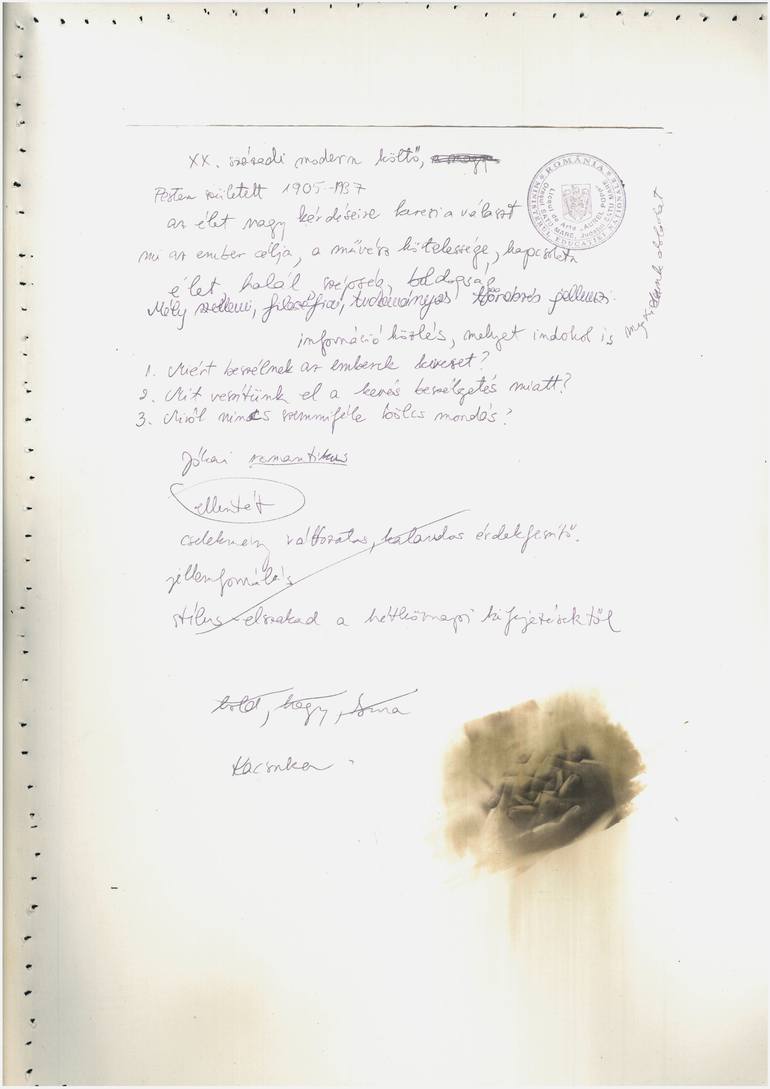 XX. századi modern költő, a nagy
Pesten született 1905-1937
az élet nagy kérdéseire keresi a választ
mi az ember célja, a művész kötelessége, kapcsolata
élet, halál, szépség, boldogság
Mély szellemi, filozófiai, tudományos,
információ közlés, melyet indokol is
1. Miért beszélnek az emberek keveset?
2. Mit veszítünk el a kevés beszélgetés miatt?
3. Miről nincs semmiféle bölcs mondás?
Jókai romantikus
ellentét
cselekmény változatos, kalandos érdekfeszítő.
jellemformálás
stílus - elszakad a hétköznapi kifejezésektől
hold, hegy,
Kacsuka
ROMÂNIA
MINISTERUL EDUCAȚIEI NAȚIONALE
Liceul de Arte „AUREL POPP"
Orașul SATU MARE, Județul SATU MARE